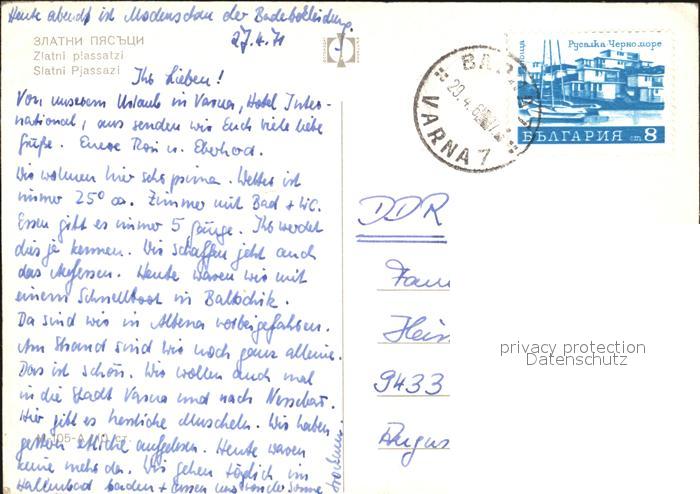 Heute abend ist Modenschau der Badebekleidung.
27.4.71
ЗЛАТНИ ПЯСЪЦИ
Zlatni piassatzi
Slatni Pjassazi
Ihr Lieben!
Von unserem Urlaub in Varna, Hotel Inter-
national, aus senden wir Euch viele liebe
Grüße. Eure Rosi u. Eberhard.
Wir wohnen hier sehr prima. Wetter ist
immer 25° ca. Zimmer mit Bad + WC.
Essen gibt es immer 5 Gänge. Ihr werdet
dies ja kennen. Wir schaffen jetzt auch
das Aufessen. Heute waren wir mit
einem Schnellboot in Baltschik.
Da sind wir in Albena vorbeigefahren.
Am Strand sind wir noch ganz alleine.
Das ist schön. Wir wollen auch mal
in die Stadt Varna und nach Nessebar.
Hier gibt es herrliche Muscheln. Wir haben
gestern etliche aufgelesen. Heute waren
keine mehr da. Wir gehen täglich im
Hallenbad baden + essen uns
ВАРНА
VARNA 7
Русалка Черноморе
БЪЛГАРИЯ ст 8
DDR
Fam
Hein
9433
privacy protection
Datenschutz